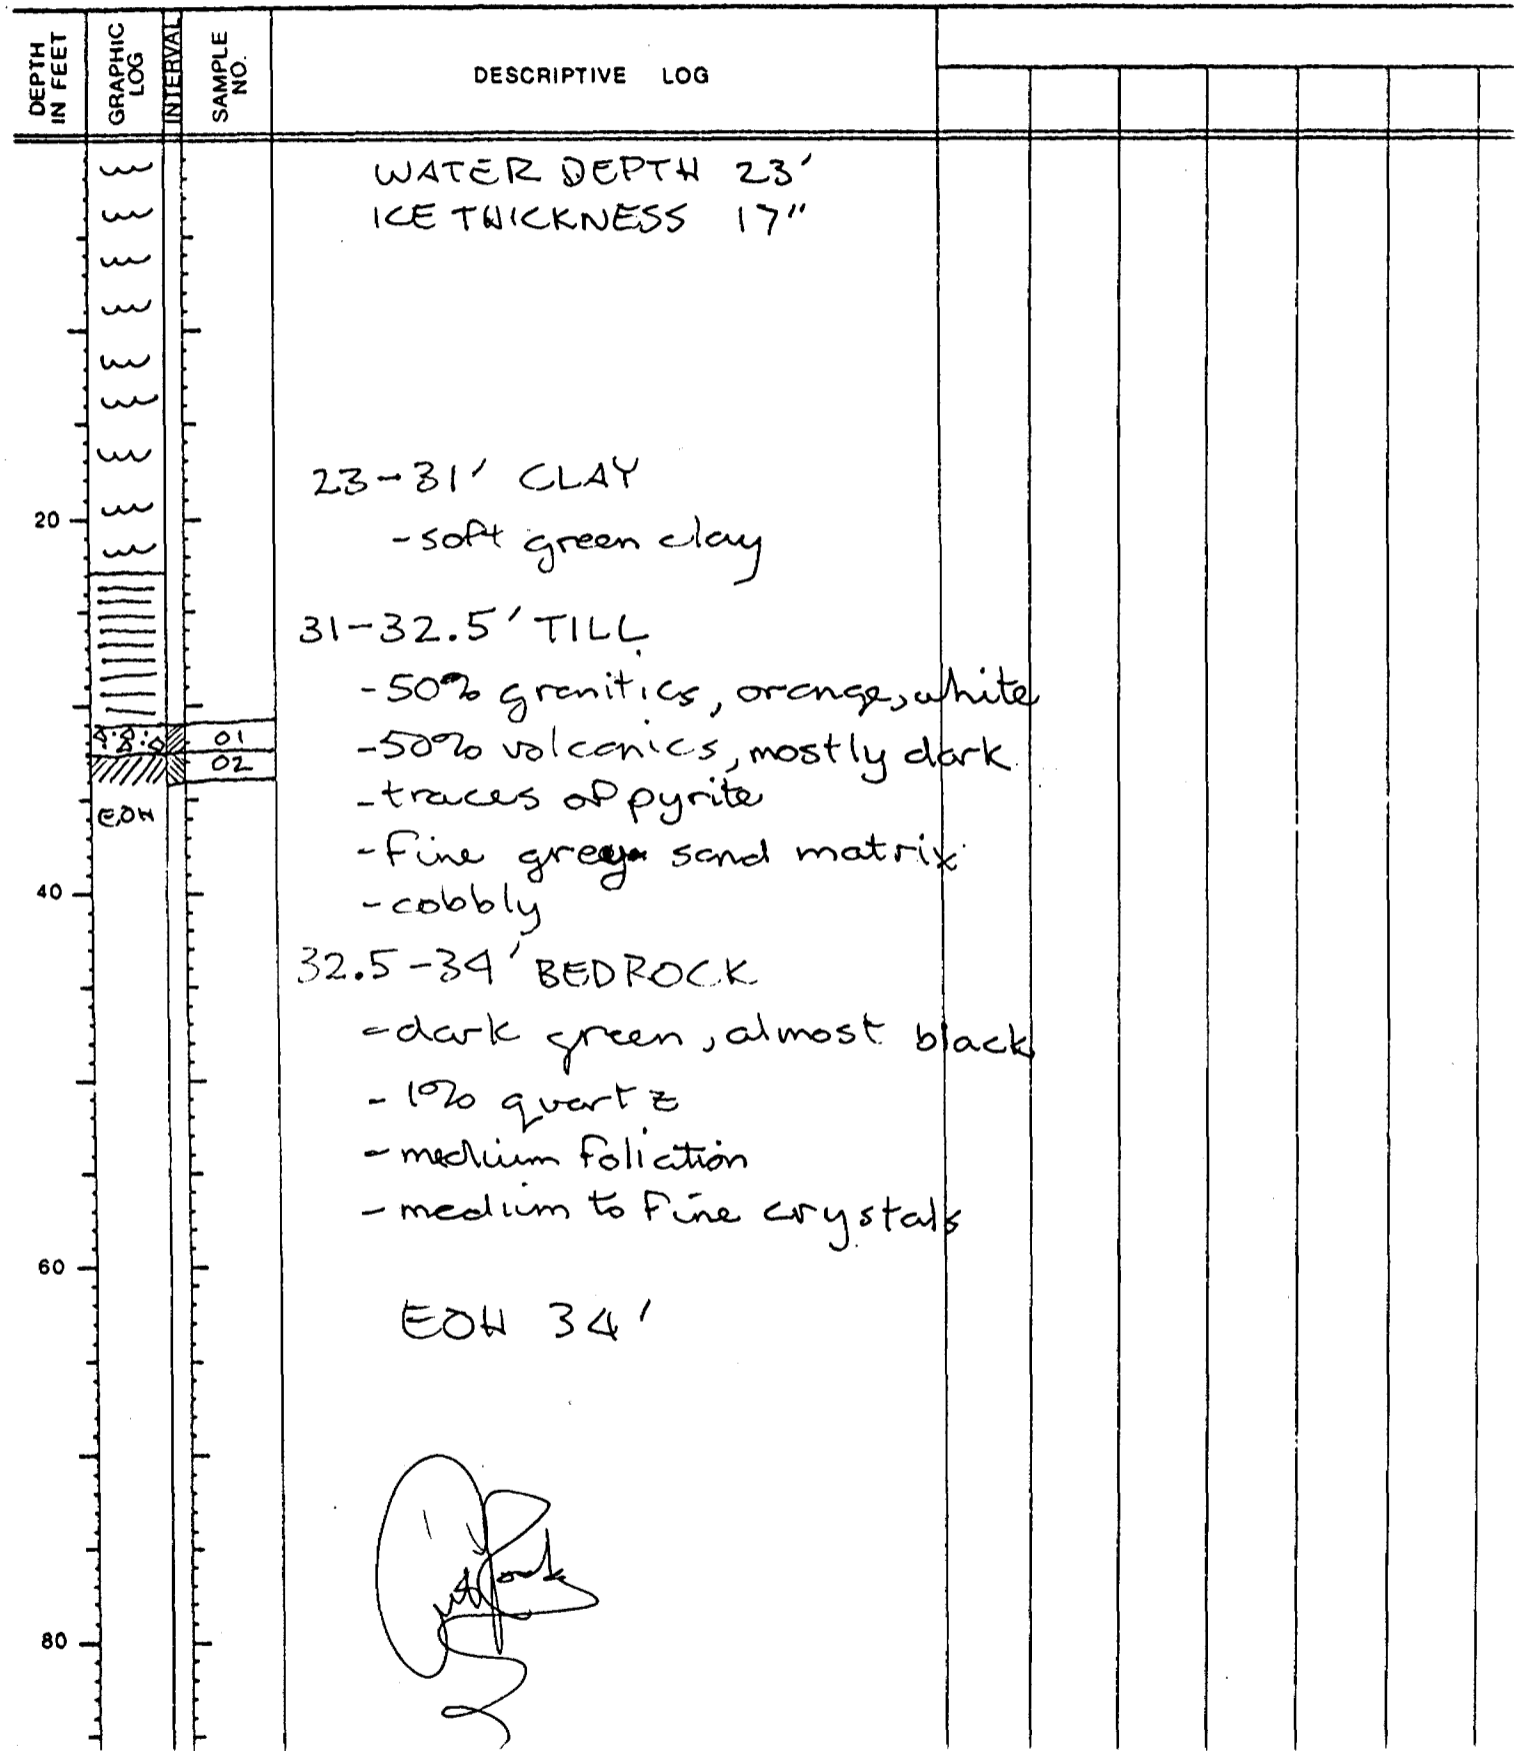 DEPTH IN FEET
GRAPHIC LOG
INTERVAL
SAMPLE NO.
DESCRIPTIVE LOG
WATER DEPTH 23'
ICE THICKNESS 17"
23-31' CLAY
20
-soft green clay
31-32.5' TILL
-50% granitics, orange, white
01
-50% volcanics, mostly dark
02
-traces of pyrite
EOH
-fine grey sand matrix
40
-cobbly
32.5-34' BEDROCK
-dark green, almost black
-1% quartz
-medium foliation
-medium to fine crystals
60
EOH 34'
80